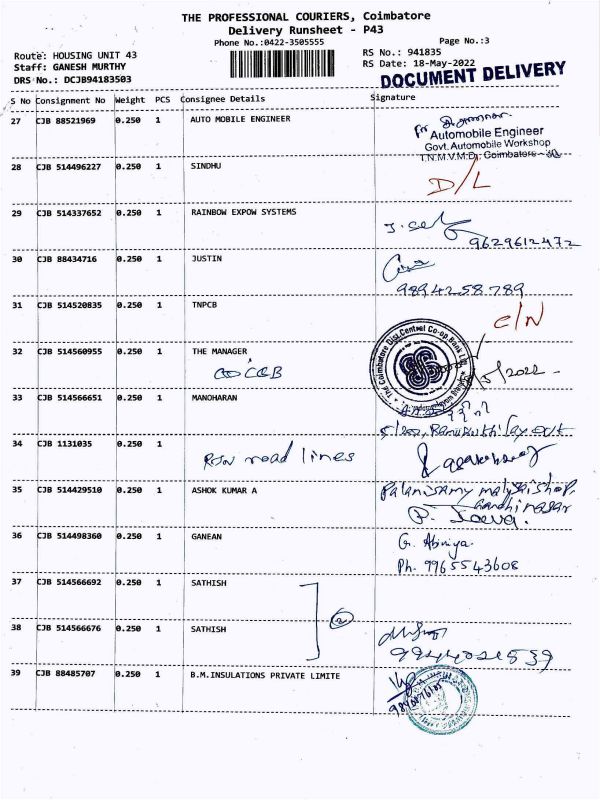 THE PROFESSIONAL COURIERS, Coimbatore
Delivery Runsheet - P43
Phone No.:0422-3505555
Page No.:3
Route: HOUSING UNIT 43
RS No.: 941835
Staff: GANESH MURTHY
RS Date: 18-May-2022
DRS No.: DCJB94183503
DOCUMENT DELIVERY
S No Consignment No Weight PCS Consignee Details Signature
27 CJB 88521969 0.250 1 AUTO MOBILE ENGINEER
for
Automobile Engineer
Govt. Automobile Workshop
T.N.M.V.M.D., Coimbatore
28 CJB 514496227 0.250 1 SINDHU
D/L
29 CJB 514337652 0.250 1 RAINBOW EXPOW SYSTEMS
9629612472
30 CJB 88434716 0.250 1 JUSTIN
9894258789
31 CJB 514520835 0.250 1 TNPCB
C/N
32 CJB 514560955 0.250 1 THE MANAGER
The Coimbatore Dist. Central Co-op. Bank Ltd.
33 CJB 514566651 0.250 1 MANOHARAN
34 CJB 1131035 0.250 1
road lines
35 CJB 514429510 0.250 1 ASHOK KUMAR A
Palanisamy
Gandhinagar
36 CJB 514498360 0.250 1 GANEAN
G. Abinya
Ph. 9965543608
37 CJB 514566692 0.250 1 SATHISH
2
38 CJB 514566676 0.250 1 SATHISH
39 CJB 88485707 0.250 1 B.M.INSULATIONS PRIVATE LIMITE